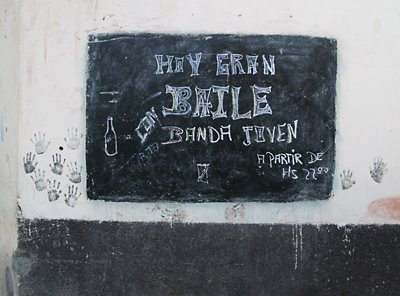 HOY GRAN
BAILE
CON
BANDA JOVEN
A PARTIR DE
HS 22⁰⁰